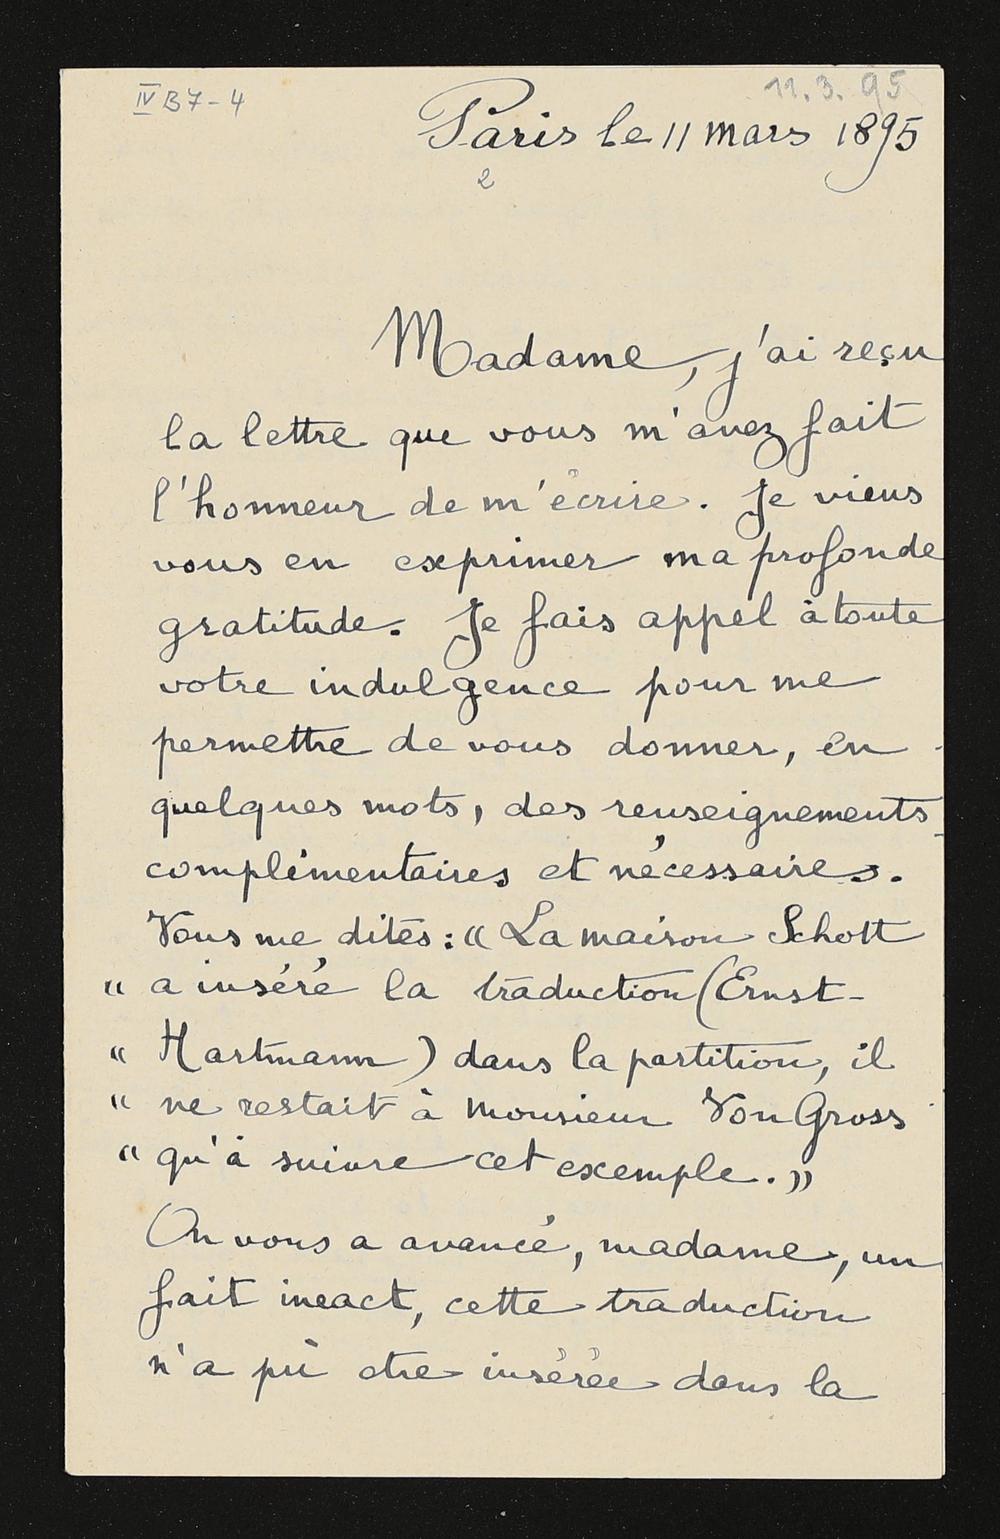 IV B 7 - 4
11. 3. 95
Paris le 11 mars 1895
2
Madame, j'ai reçu
la lettre que vous m'avez fait
l'honneur de m'écrire. Je viens
vous en exprimer ma profonde
gratitude. Je fais appel à toute
votre indulgence pour me
permettre de vous donner, en
quelques mots, des renseignements
complémentaires et nécessaires.
Vous me dites : « La maison Schott
« a inséré la traduction (Ernst-
« Hartmann) dans la partition, il
« ne restait à Monsieur Von Gross
« qu'à suivre cet exemple. »
On vous a avancé, madame, un
fait ineact, cette traduction
n'a pû être insérée dans la